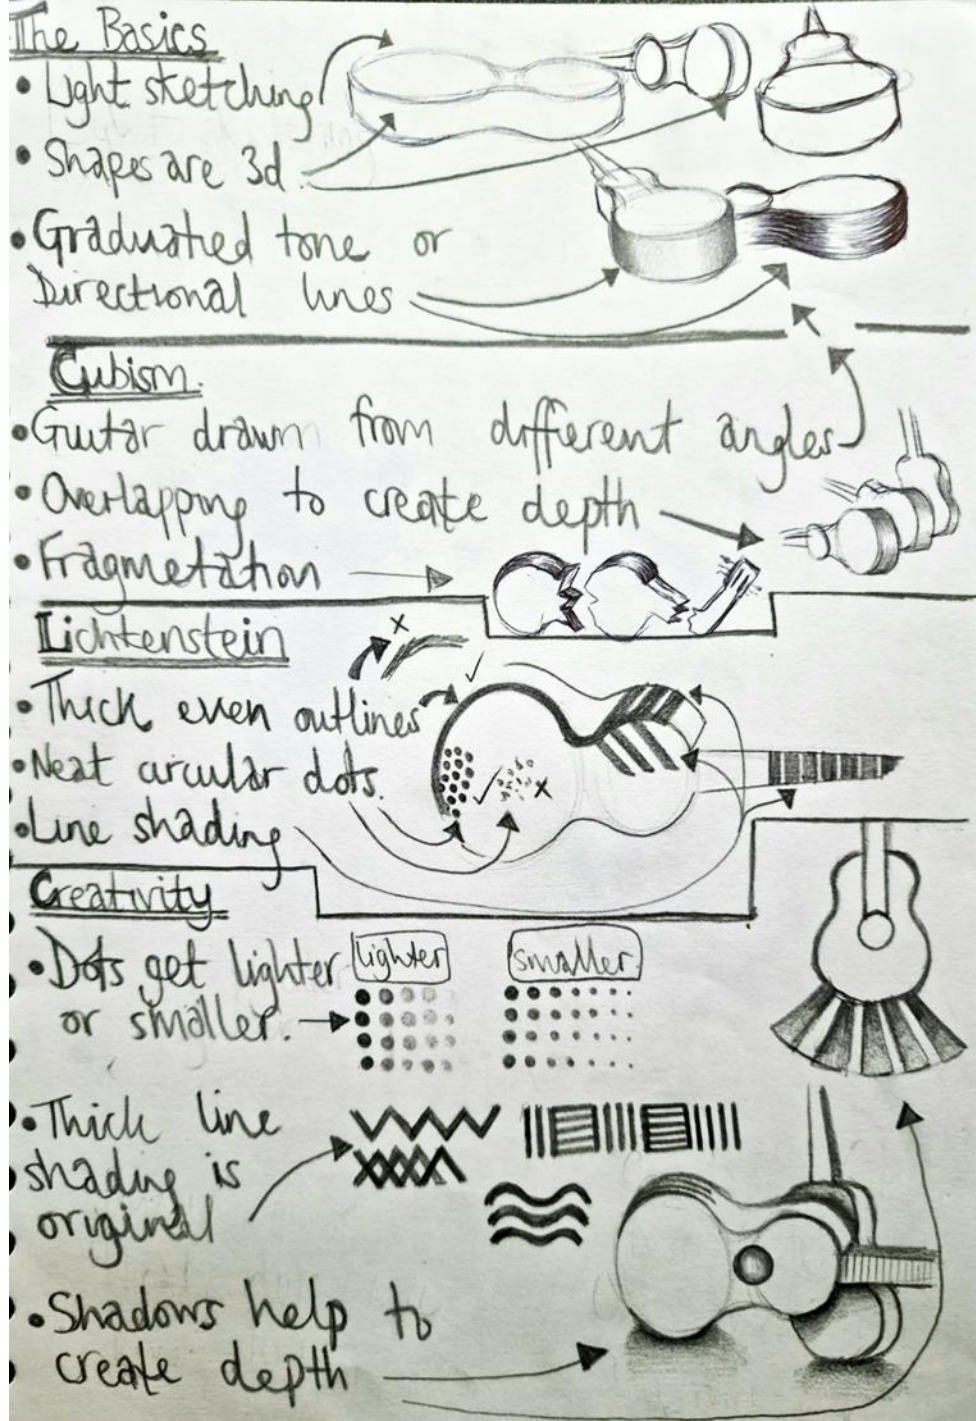 The Basics
• Light sketching
• Shapes are 3d.
• Graduated tone or
Directional lines
Cubism.
• Guitar drawn from different angles
• Overlapping to create depth
• Fragmetation
Lichtenstein
• Thick even outlines
• Neat circular dots.
• Line shading
Creativity
• Dots get lighter
or smaller.
lighter
smaller
• Thick line
shading is
original
• Shadows help to
create depth